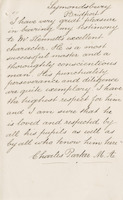 Symondsbury
Bridport
I have very great pleasure
in bearing my testimony
to Mr Sinnott's excellent
character. He is a most
successful master and a
thoroughly conscientious
man. His punctuality
perseverance and
are quite exemplary. I have
the highest respect for him
and I am sure that he
is loved and respected by
all his pupils as well as
by all who know him here.
Charles Porter M.A.